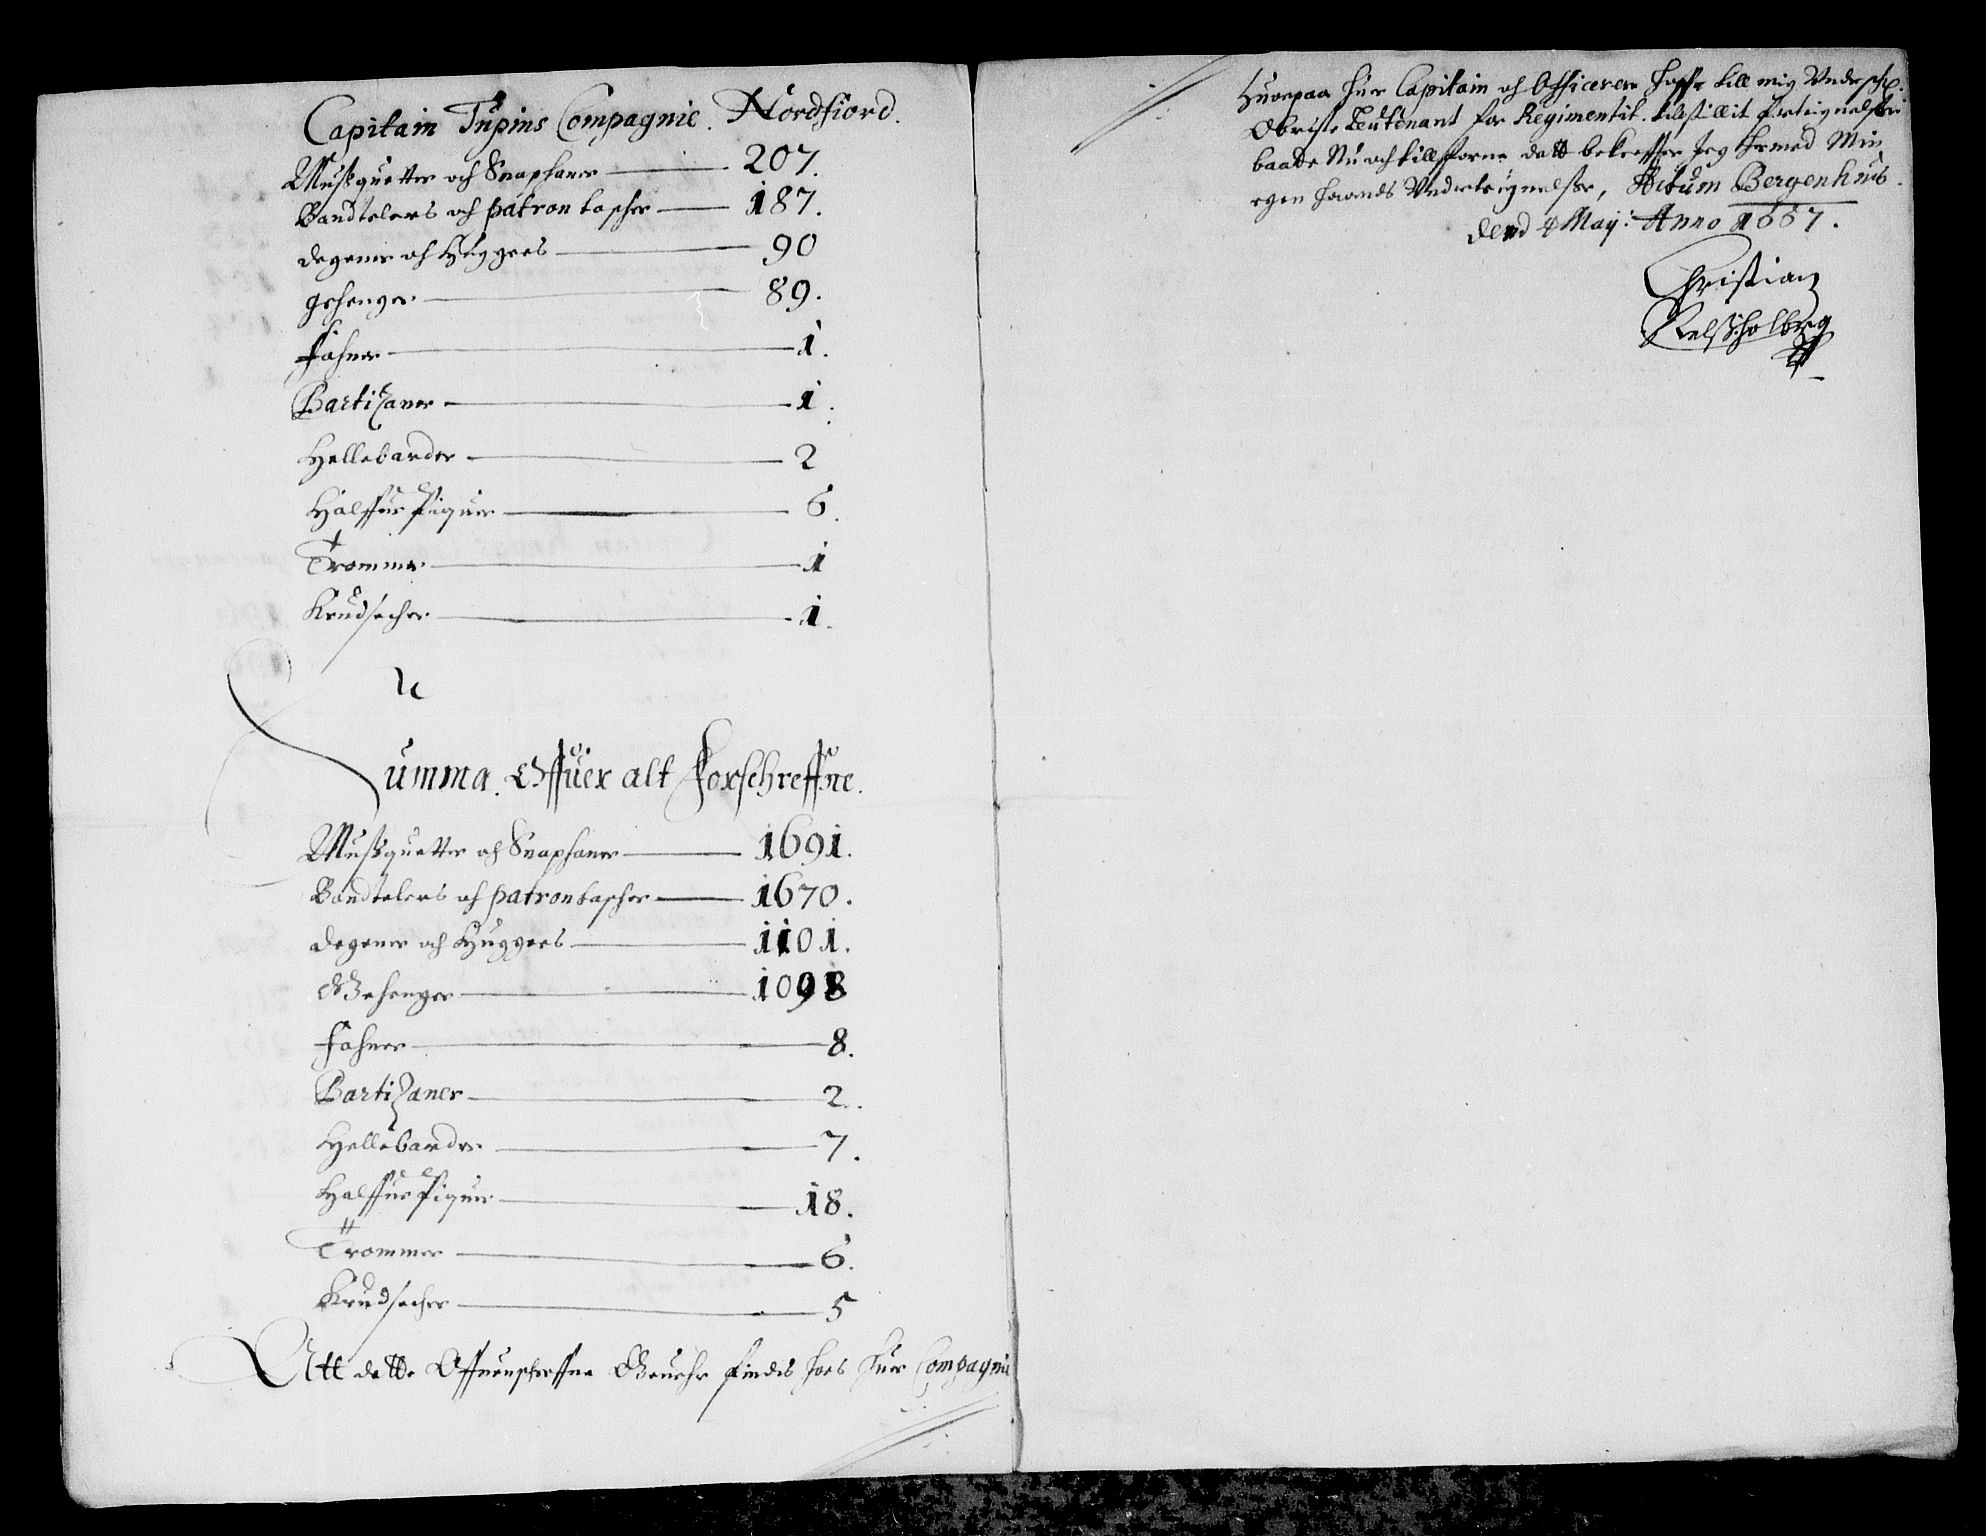 Capitain Tupins Compagnie. Nordfiord.
Mussquetter och Snaphaner 207.
Bandtelers och patron tascher 187.
degener och Huggers 90
gehenger 89.
fahner 1.
Partizaner 1.
Hellebarder 2
Halffue Piquer 6.
Trommer 1
Krudsecher 1.
Summa. Offuer alt Forschreffne.
Mussquetter och Snaphaner 1691.
Bandtelers och patrontascher 1670.
degener och Huggers 1101.
Gehenger 1098
fahner 8.
Partizaner 2.
Hellebarder 7.
Halffue Piquer 18.
Trommer 6.
Krudsecher 5
Att dette Offuenschreffne Geuehr findis hoes huer Compagnie
Huorpaa huer Capitain och Officerer haffr till mig Vndersch:
Obriste Leutenant for Regimentit. tilstillit forteignelser
baade Nu och tillforne dett bekreffter Jeg hermed Min
egen haands Vnderteignelse, Actum Bergenhuus.
Dend 4 May: Anno 1667.
Christian
Nelss: holberg